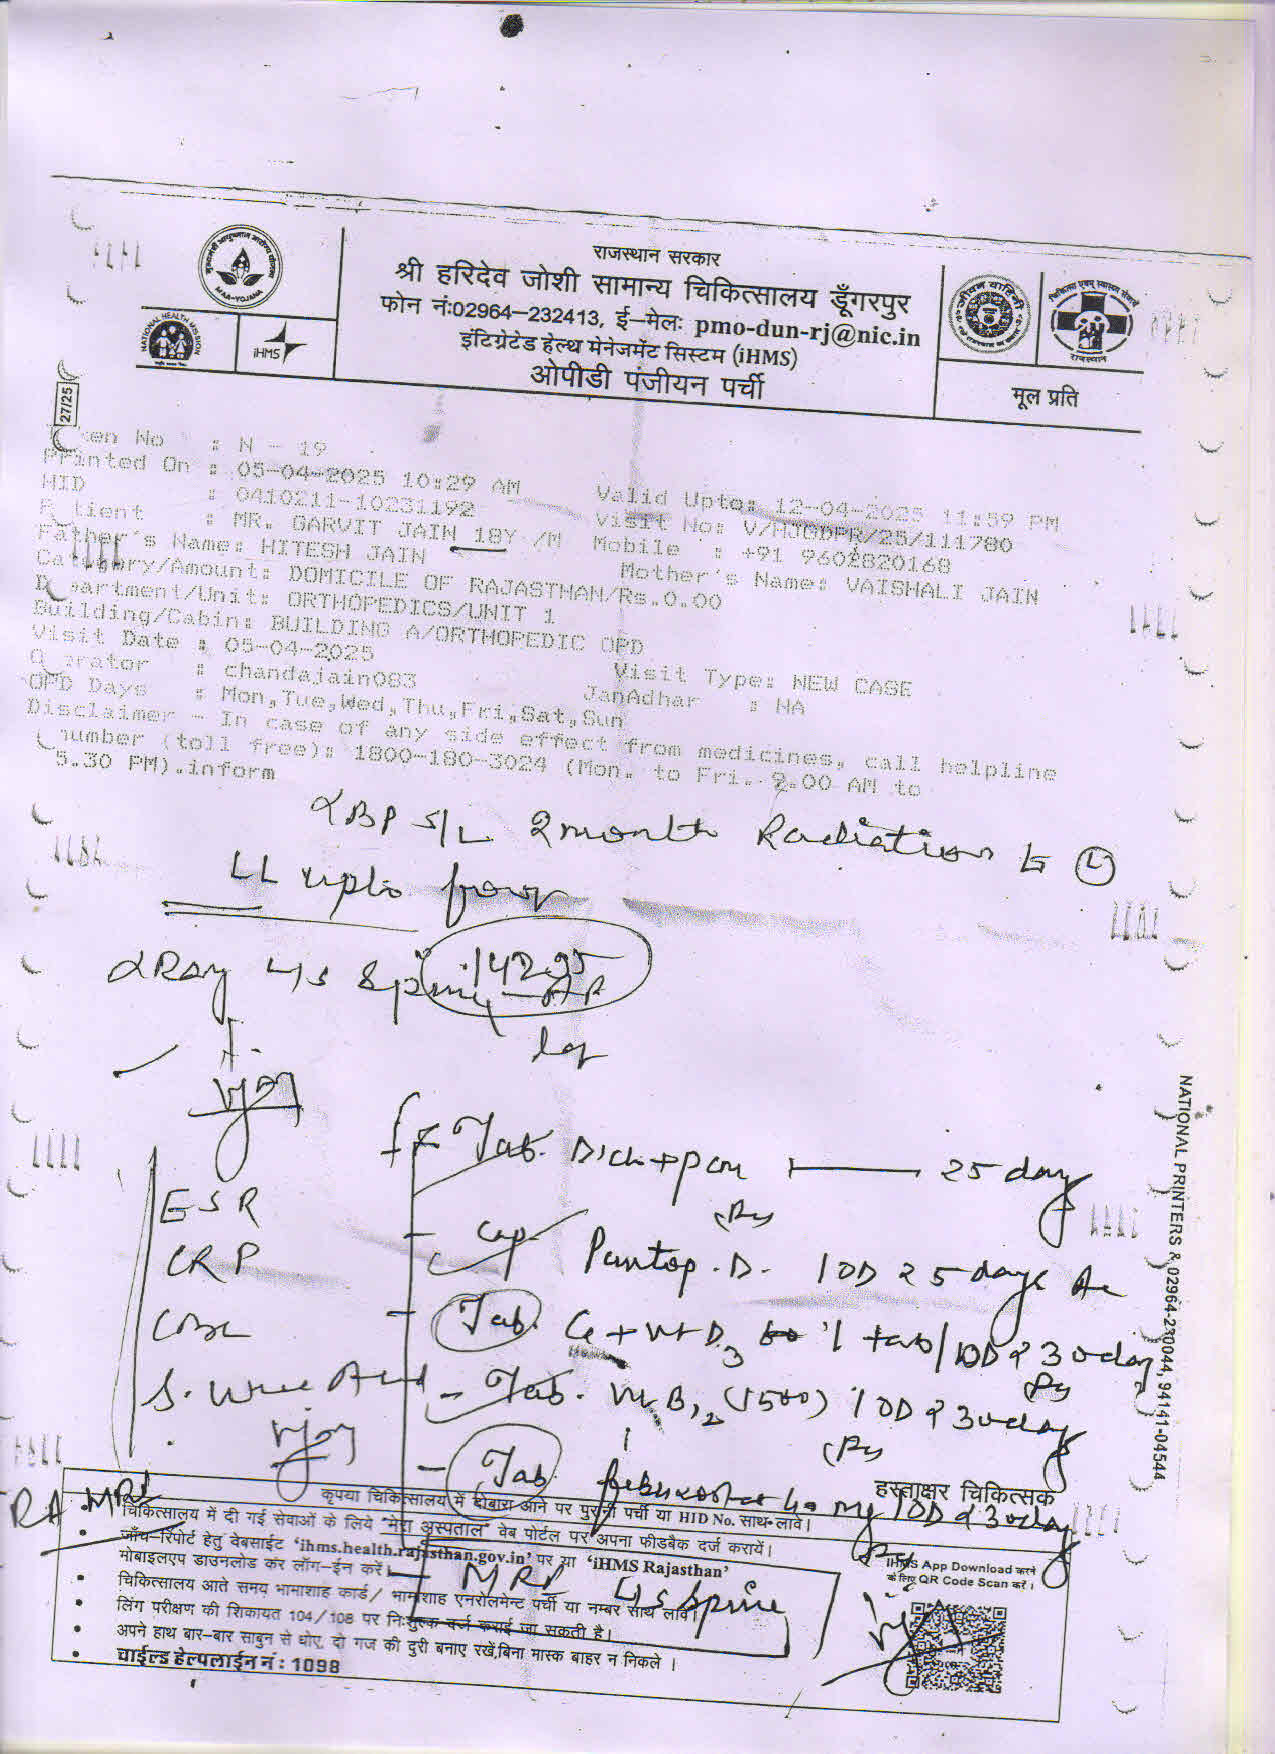 राजस्थान सरकार
श्री हरिदेव जोशी सामान्य चिकित्सालय डूँगरपुर
फोन नं:02964-232413, ई-मेलः pmo-dun-rj@nic.in
इंटिग्रेटेड हेल्थ मेनेजमेंट सिस्टम (iHMS)
ओपीडी पंजीयन पर्ची
MAA-YOJANA
NATIONAL HEALTH MISSION
iHMS
राजस्थान
मूल प्रति
27/25
ken No : N - 19
Printed On : 05-04-2025 10:29 AM Valid Upto: 12-04-2025 11:59 PM
HID : 0410211-10231192 Visit No: V/HJGDPR/25/111780
Patient : MR. GARVIT JAIN 18Y /M Mobile : +91 9602820168
Father's Name: HITESH JAIN Mother's Name: VAISHALI JAIN
Category/Amount: DOMICILE OF RAJASTHAN/Rs.0.00
Department/Unit: ORTHOPEDICS/UNIT 1
Building/Cabin: BUILDING A/ORTHOPEDIC OPD
Visit Date : 05-04-2025 Visit Type: NEW CASE
Operator : chandajain083 JanAdhar : NA
OPD Days : Mon,Tue,Wed,Thu,Fri,Sat,Sun
Disclaimer - In case of any side effect from medicines, call helpline
number (toll free): 1800-180-3024 (Mon. to Fri. 9.00 AM to
5.30 PM).inform
LBP 2 month Radiation to (L)
LL upto
XRay L/S Spine AP
14295
Lat
Tab. 25 day
ESR
Cap Pantop.D. 1OD x 25 days
CRP
Tab. Ca + vit D3 1 tab/1OD x 30 day
CBC
Tab. vit B12 (1500) 1OD x 30 day
S. Uric Acid
Tab. Febuxostat 40 mg 1OD x 30 day
हस्ताक्षर चिकित्सक
RA
MRI L/S Spine
कृपया चिकित्सालय में दोबारा आने पर पुरानी पर्ची या HID No. साथ लावें।
• चिकित्सालय में दी गई सेवाओं के लिये "मेरा अस्पताल" वेब पोर्टल पर अपना फीडबैक दर्ज करायें।
• जाँच-रिपोर्ट हेतु वेबसाईट 'ihms.health.rajasthan.gov.in' पर या 'iHMS Rajasthan'
मोबाइलएप डाउनलोड कर लॉग-ईन करें।
• चिकित्सालय आते समय भामाशाह कार्ड/ भामाशाह एनरोलमेन्ट पर्ची या नम्बर साथ लावें।
• लिंग परीक्षण की शिकायत 104/108 पर निःशुल्क दर्ज कराई जा सकती है।
• अपने हाथ बार-बार साबुन से धोए, दो गज की दुरी बनाए रखें,बिना मास्क बाहर न निकले ।
• चाईल्ड हेल्पलाईन नं : 1098
iHMS App Download करने
के लिए QR Code Scan करें।
NATIONAL PRINTERS & 02964-230044, 94141-04544